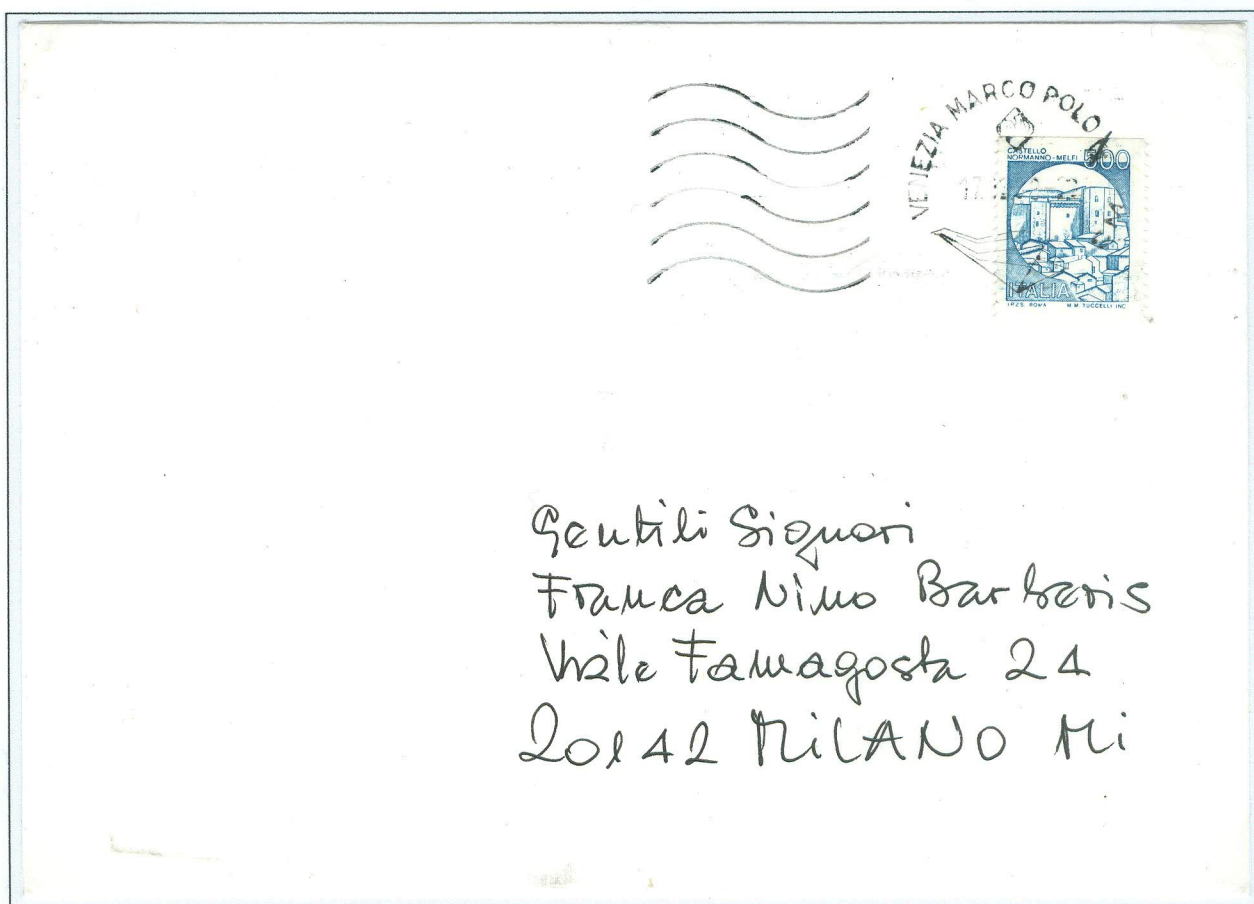 VENEZIA MARCO POLO
17.12
CASTELLO
NORMANNO-MELFI 500
ITALIA
I.P.Z.S. ROMA M.M. TUCCELLI INC.
Gentili Signori
Franca Nino Barberis
Viale Famagosta 24
20142 MILANO Mi